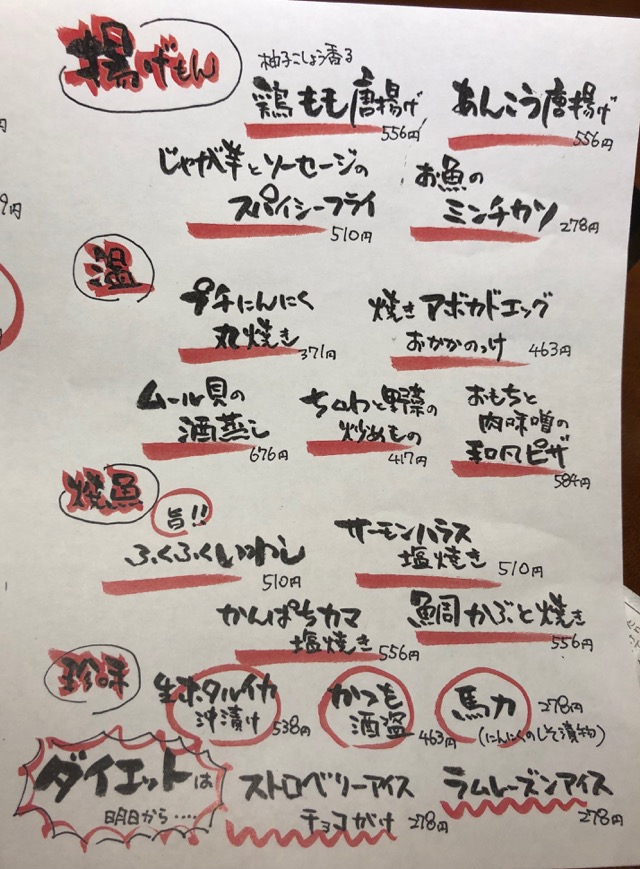 円
9円
揚げもん
柚子こしょう香る
鶏もも唐揚げ
556円
あんこう唐揚げ
556円
じゃが芋とソーセージの
スパイシーフライ
510円
お魚の
ミンチカツ
278円
温
プチにんにく
丸焼き
371円
焼きアボカドエッグ
おかかのっけ
463円
ムール貝の
酒蒸し
676円
ちくわと野菜の
炒めもの
417円
おもちと
肉味噌の
和風ピザ
584円
焼魚
旨!!
ふくふくいわし
510円
サーモンハラス
塩焼き
510円
かんぱちカマ
塩焼き
556円
鯛かぶと焼き
556円
珍味
生ホタルイカ
沖漬け
538円
かつも
酒盗
463円
馬力
278円
(にんにくのしそ漬物)
ダイエットは
明日から‥‥
ストロベリーアイス
チョコがけ
278円
ラムレーズンアイス
278円